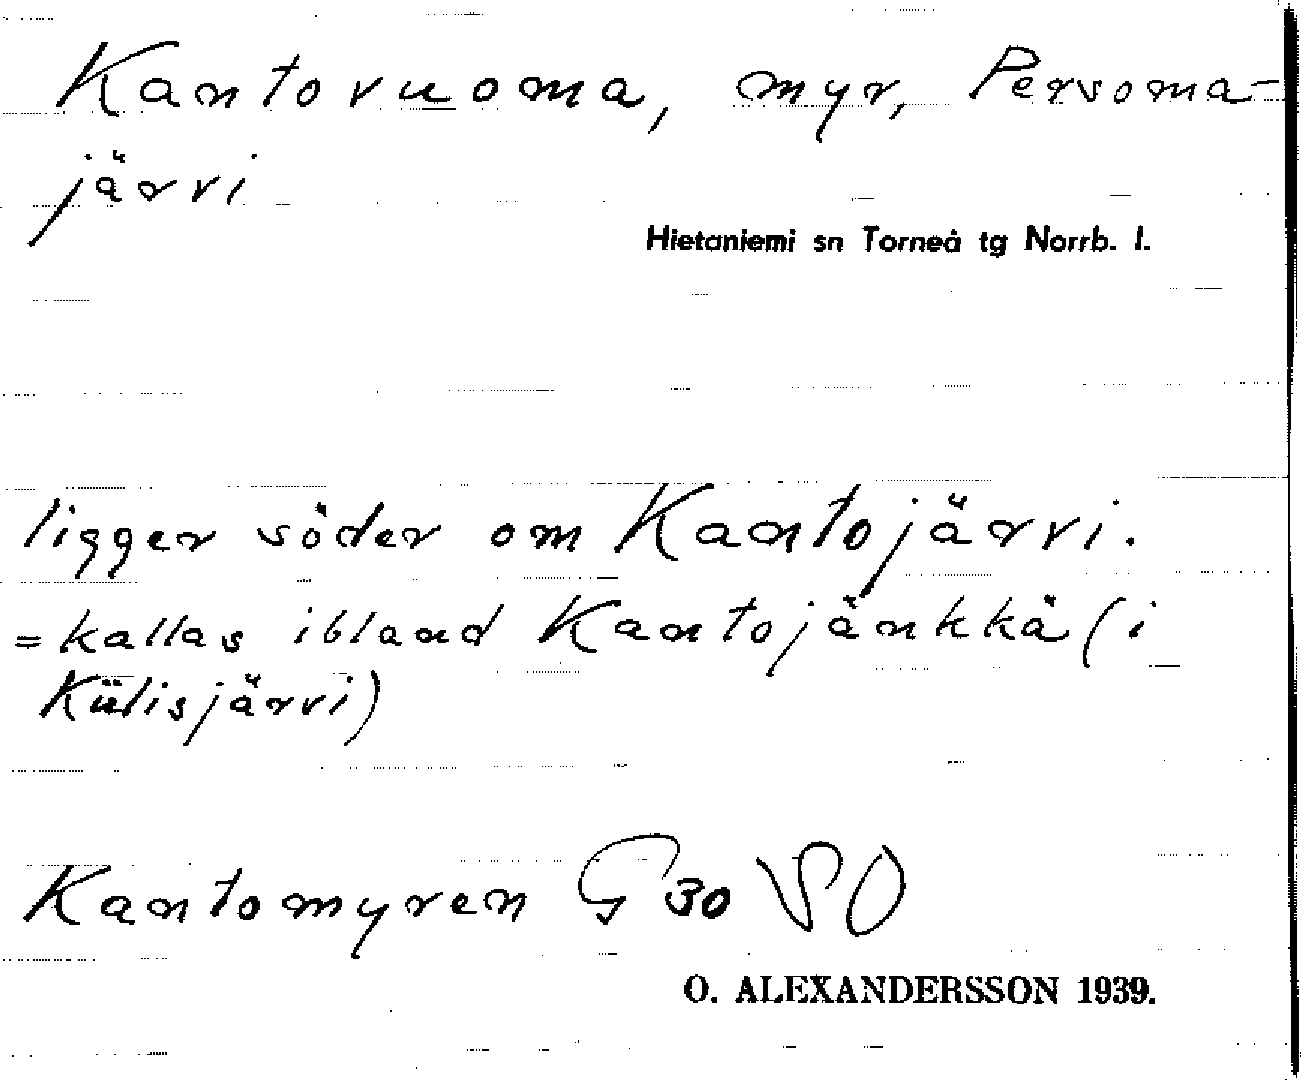 Kantovuoma, myr, Persoma-
järvi
Hietaniemi sn Torneå tg Norrb. l.
ligger söder om Kantojärvi.
= kallas ibland Kantojänkkä (i
Külisjärvi)
Kantomyren G 30 SO
O. ALEXANDERSSON 1939.